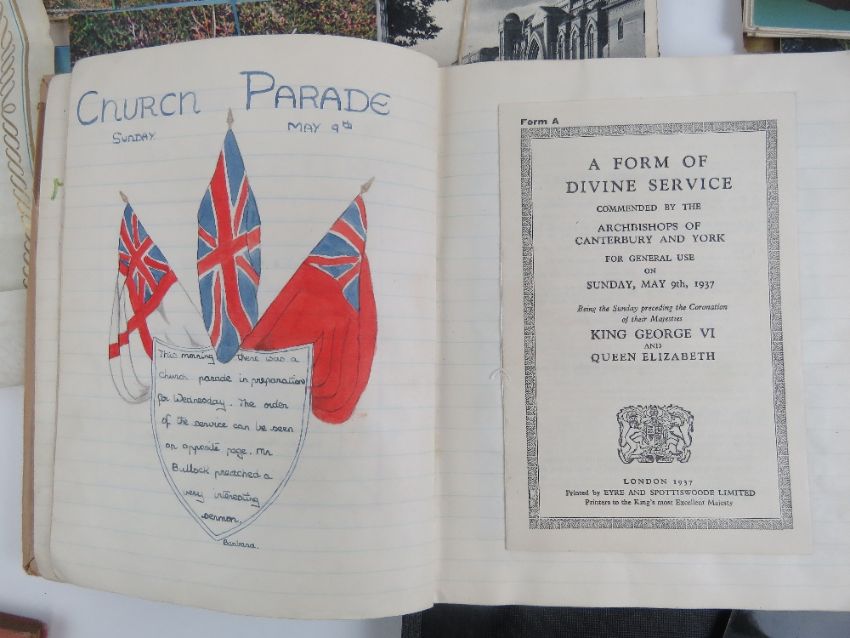 Church Parade
Sunday May 9th
This morning there was a
church parade in preparation
for Wednesday. The order
of the service can be seen
on opposite page. Mr
Bullock preached a
very interesting
sermon.
Barbara.
Form A
A FORM OF
DIVINE SERVICE
COMMENDED BY THE
ARCHBISHOPS OF
CANTERBURY AND YORK
FOR GENERAL USE
ON
SUNDAY, MAY 9th, 1937
Being the Sunday preceding the Coronation
of their Majesties
KING GEORGE VI
AND
QUEEN ELIZABETH
LONDON 1937
Printed by EYRE AND SPOTTISWOODE LIMITED
Printers to the King's most Excellent Majesty